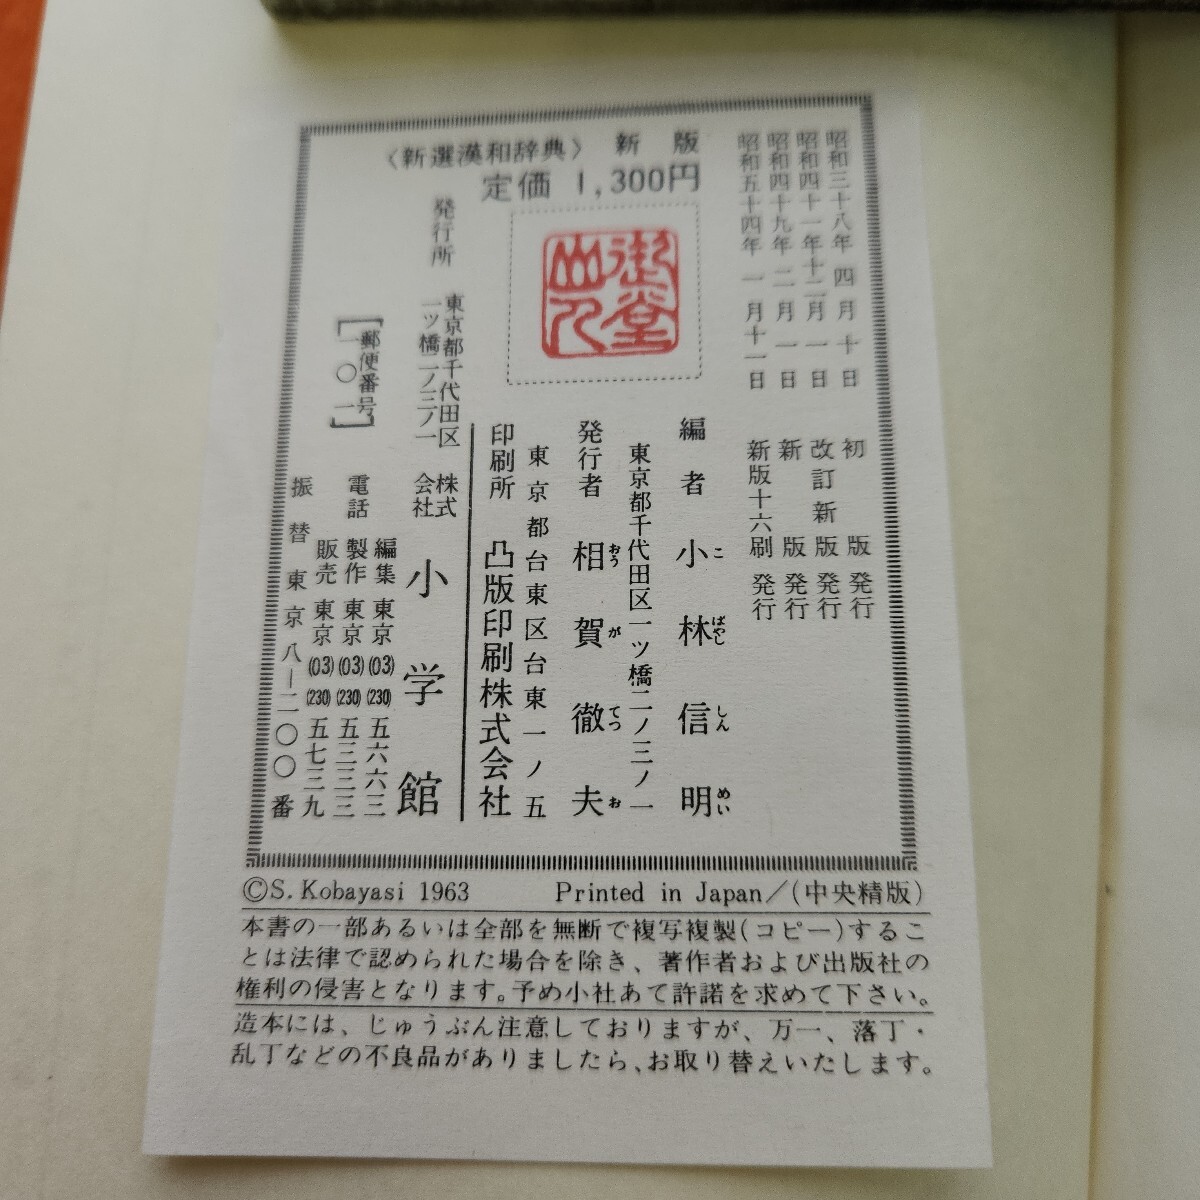 昭和三十八年 四月 十日 初版発行
昭和四十一年十二月 一日 改訂新版発行
昭和四十九年 二月 一日 新版発行
昭和五十四年 一月十一日 新版十六刷発行
〈新選漢和辞典〉 新版
定価 1,300円
編者 小林信明
こ ばやし しん めい
東京都千代田区一ツ橋二ノ三ノ一
発行者 相賀徹夫
おう が てつ お
東京都台東区台東一ノ五
印刷所 凸版印刷株式会社
発行所 東京都千代田区
一ツ橋二ノ三ノ一
株式会社 小学館
[郵便番号
一〇一]
電話 編集 東京(03)(230)五六六三
製作 東京(03)(230)五三三三
販売 東京(03)(230)五七三九
振替 東京 八―二〇〇番
©S. Kobayasi 1963 Printed in Japan/(中央精版)
本書の一部あるいは全部を無断で複写複製(コピー)するこ
とは法律で認められた場合を除き、著作者および出版社の
権利の侵害となります。予め小社あて許諾を求めて下さい。
造本には、じゅうぶん注意しておりますが、万一、落丁・
乱丁などの不良品がありましたら、お取り替えいたします。